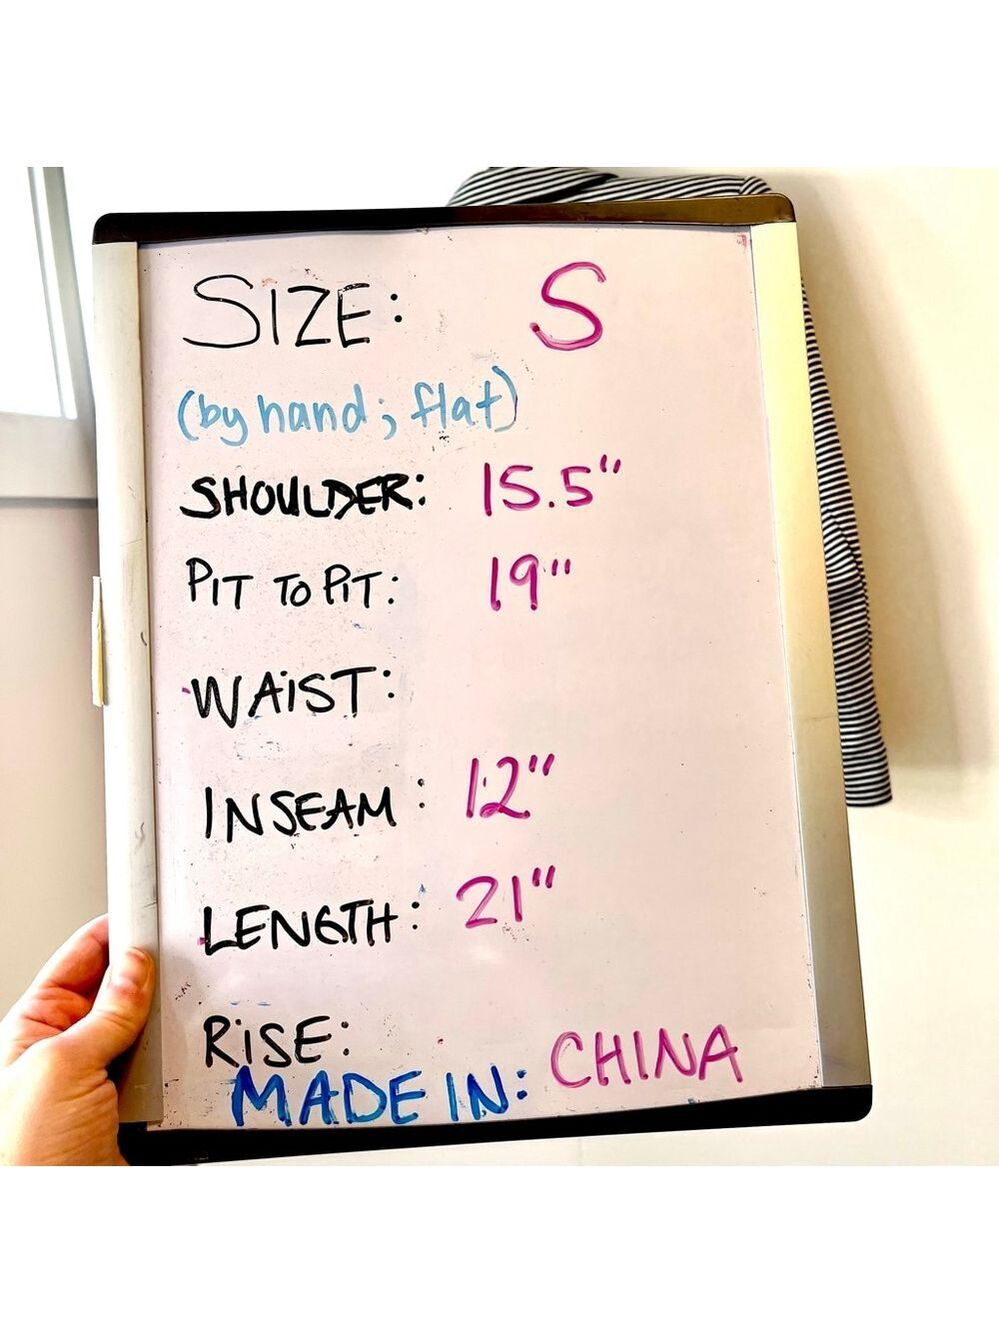 SIZE: S
(by hand; flat)
SHOULDER: 15.5"
PIT TO PIT: 19"
WAIST:
INSEAM: 12"
LENGTH: 21"
RISE:
MADE IN: CHINA